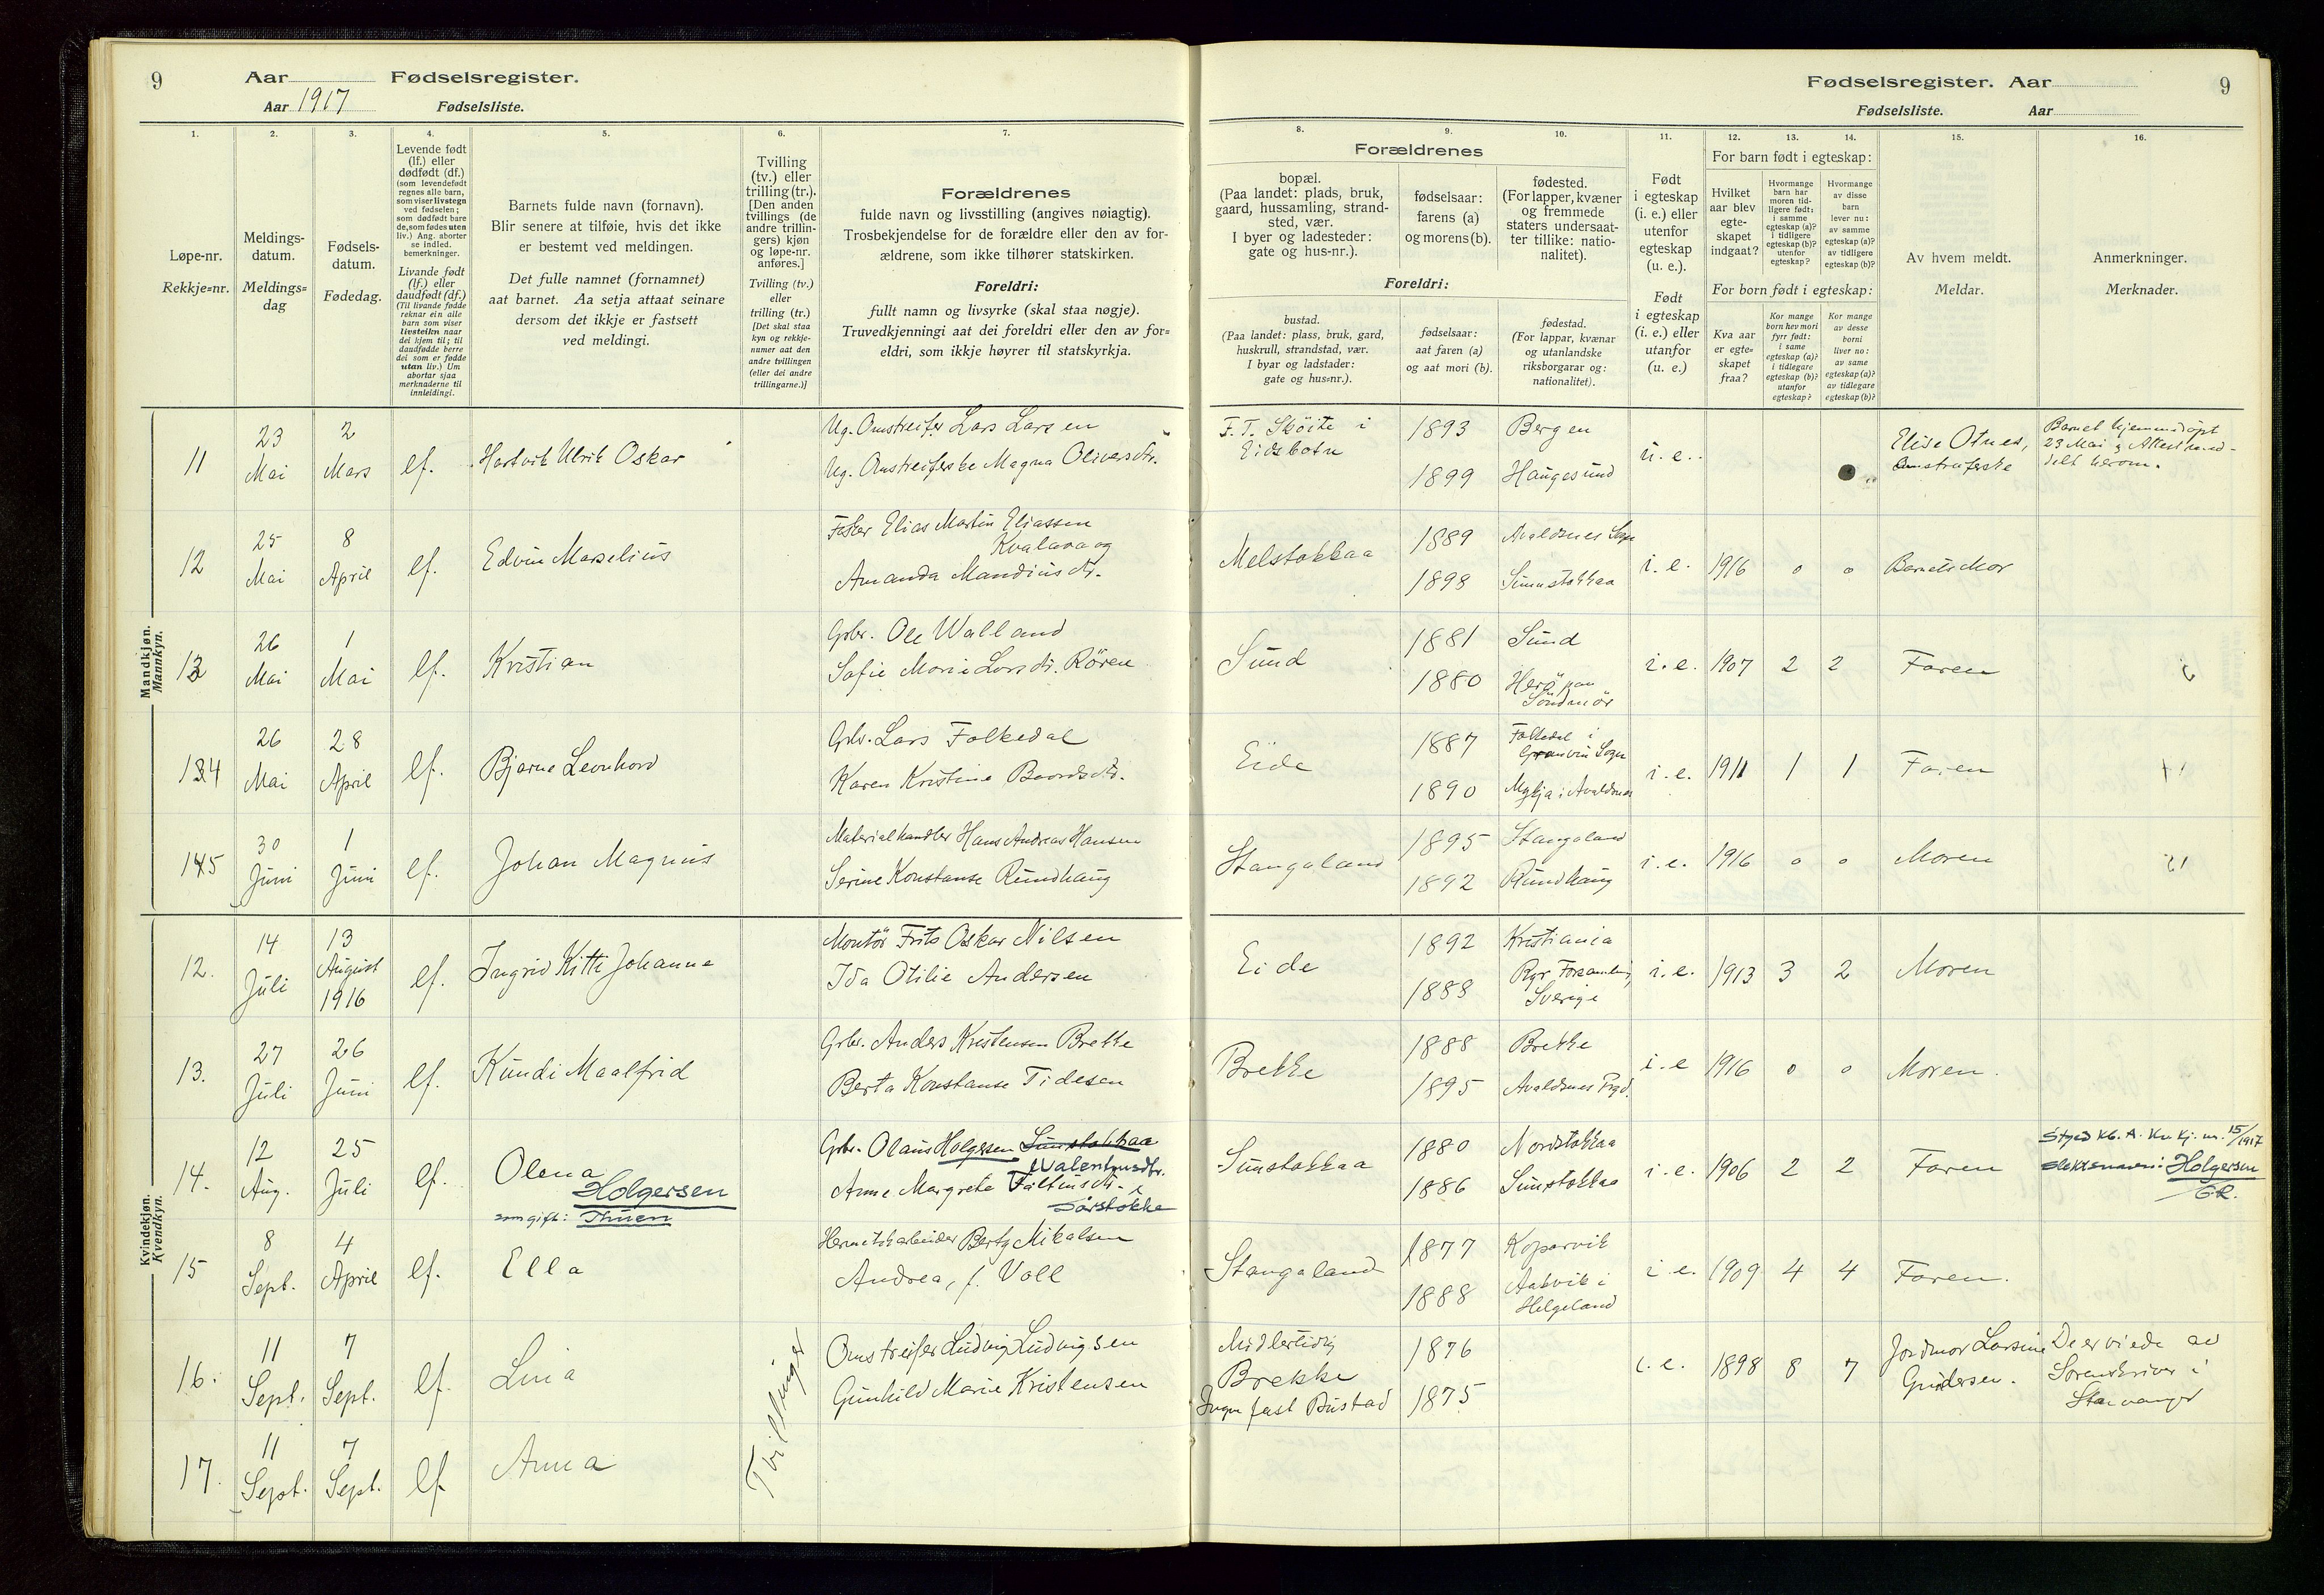 9
Aar Fødselsregister.
Aar 1917 Fødselsliste.
Fødselsregister. Aar
9
Fødselsliste. Aar
1.
Løpe-nr.
Rekkje=nr.
2.
Meldings-
datum.
Meldings=
dag
3.
Fødsels-
datum.
Fødedag.
4.
Levende født
(lf.) eller
dødfødt (df.)
(som levendefødt
regnes alle barn,
som viser livstegn
ved fødselen;
som dødfødt bare
de, som fødes uten
liv.) Ang. aborter
se indled.
bemerkninger.
Livande født
(lf.) eller
daudfødt (df.)
(Til livande fødde
reknar ein alle
barn som viser
livsteikn naar
dei kjem til; til
daudfødde berre
dei som er fødde
utan liv.) Um
abortar sjaa
merknaderne til
innleidingi.
5.
Barnets fulde navn (fornavn).
Blir senere at tilføie, hvis det ikke
er bestemt ved meldingen.
Det fulle namnet (fornamnet)
aat barnet. Aa setja attaat seinare
dersom det ikkje er fastsett
ved meldingi.
6.
Tvilling
(tv.) eller
trilling (tr.).
[Den anden
tvillings (de
andre trillin-
gers) kjøn
og løpe-nr.
anføres.]
Tvilling (tv.)
eller
trilling (tr.)
[Det skal staa
kyn og rekkje-
numer aat den
andre tvillingen
(eller dei andre
trillingarne.)]
7.
Forældrenes
fulde navn og livsstilling (angives nøiagtig).
Trosbekjendelse for de forældre eller den av for-
ældrene, som ikke tilhører statskirken.
Foreldri:
fullt namn og livsyrke (skal staa nøgje).
Truvedkjenningi aat dei foreldri eller den av for=
eldri, som ikkje høyrer til statskyrkja.
Forældrenes
8.
bopæl.
(Paa landet: plads, bruk,
gaard, hussamling, strand-
sted, vær.
I byer og ladesteder:
gate og hus-nr.).
9.
fødselsaar:
farens (a)
og morens (b).
10.
fødested.
(For lapper, kvæner
og fremmede
staters undersaat-
ter tillike: natio-
nalitet).
Foreldri:
bustad.
(Paa landet: plass, bruk, gard,
huskrull, strandstad, vær.
I byar og ladstader:
gate og hus=nr.).
fødselsaar:
aat faren (a)
og aat mori (b).
fødestad.
(For lappar, kvænar
og utanlandske
riksborgarar og:
nationalitet).
11.
Født
i egteskap
(i. e.) eller
utenfor
egteskap
(u. e.).
Født
i egteskap
(i. e.) eller
utanfor
(u. e.)
For barn født i egteskap:
12.
Hvilket
aar blev
egte-
skapet
indgaat?
13.
Hvormange
barn har
moren tid-
ligere født:
i samme
egteskap (a)?
i tidligere
egteskap (b)?
utenfor
egteskap?
14.
Hvormange
av disse
barn
lever nu:
av samme
egteskap (a)?
av tidligere
egteskap (b)?
For born født i egteskap:
Kva aar
er egte=
skapet
fraa?
Kor mange
born hev mori
fyrr født:
i same
egteskap (a)?
i tidlegare
egteskap (b)?
utanfor
egteskap?
Kor mange
av desse
borni
liver no:
av same
egteskap (a)?
av tidlegare
egteskap (b)?
15.
Av hvem meldt.
Meldar.
16.
Anmerkninger.
Merknader.
Mandkjøn.
Mannkyn.
11 23 Mai 2 Mars lf. Hartvik Ulrik Oskar
Ug. Omstreifer Lars Larsen
Ug. Omstreiferske Magna Oliversdtr.
F. T. Skøite i
Eidsbotn
1893 Bergen
1899 Haugesund
u. e. Elise Otnes,
Omstreiferske
Barnet hjemmedøpt
23 Mai
12 25 Mai 8 April lf. Edvin Marselius
Fisker Elias Martin Eliassen
Kvalavaag
Amanda Mandiusdtr.
Melstokkaa
1889 Avaldsnes Sogn
1898 Sunnstokkaa
i. e. 1916 0 0 Barnets Mor
13 26 Mai 1 Mai lf. Kristian
Grbr. Ole Walland
Sofie Marie Larsdtr. Røren
Sund
1881 Sund
1880 Herø paa
Søndmør
i. e. 1907 2 2 Faren
14 26 Mai 28 April lf. Bjarne Leonhard
Grbr. Lars Folkedal
Karen Kristine Baardsdtr.
Eide
1887 Folkedal i
Granvin Sogn
1890 Mykja i Avaldsnes
i. e. 1911 1 1 Faren
15 30 Juni 1 Juni lf. Johan Magnus
Materialhandler Hans Andreas Hansen
Serine Konstanse Rundhaug
Stangaland
1895 Stangaland
1892 Rundhaug
i. e. 1916 0 0 Moren
Kvindekjøn.
Kvendkyn.
12. 14 Juli 13 August 1916 lf. Ingrid Kitti Johanne
Montør Frits Oskar Nilsen
Ida Otilie Andersen
Eide
1892 Kristiania
1888 Ryr Forsamling,
Sverige
i. e. 1913 3 2 Moren
13. 27 Juli 26 Juni lf. Kundi Maalfrid
Grbr. Anders Kristensen Brekke
Berta Konstanse Tidesen
Brekke
1888 Brekke
1895 Avaldsnes Prgd.
i. e 1916 0 0 Moren.
14. 12 Aug. 25 Juli lf. Olena
Holgersen
som gift: Thuen
Grbr. Olaus Holgersen Sunstokkaa
Valentinsdtr.
Anne Margrete Faltinsdtr.
Sørstokke
Sunstokkaa
1880 Nordstokkaa
1886 Sunstokkaa
i. e. 1906 2 2 Faren
Kb. A. Kv kj. nr. 15/1917
slektsnavn: Holgersen
15 8 Sept. 4 April lf. Ella
Hermetikarbeider Berty Mikalsen
Andrea, f. Voll
Stangaland
1877 Kopervik
1888 Aakvik i
Helgeland
i. e. 1909 4 4 Faren.
16. 11 Sept. 7 Sept. lf. Lina
Tvillinger
Omstreifer Ludvig Ludvigsen
Gunhild Marie Kristensen
Midlertidig
Brekke
Ingen fast Bustad
1876
1875
i. e. 1898 8 7 Jordmor Larsine
Gundersen.
De er viede av
Sorenskriver i
Stavanger
17. 11 Sept. 7 Sept. lf. Anna